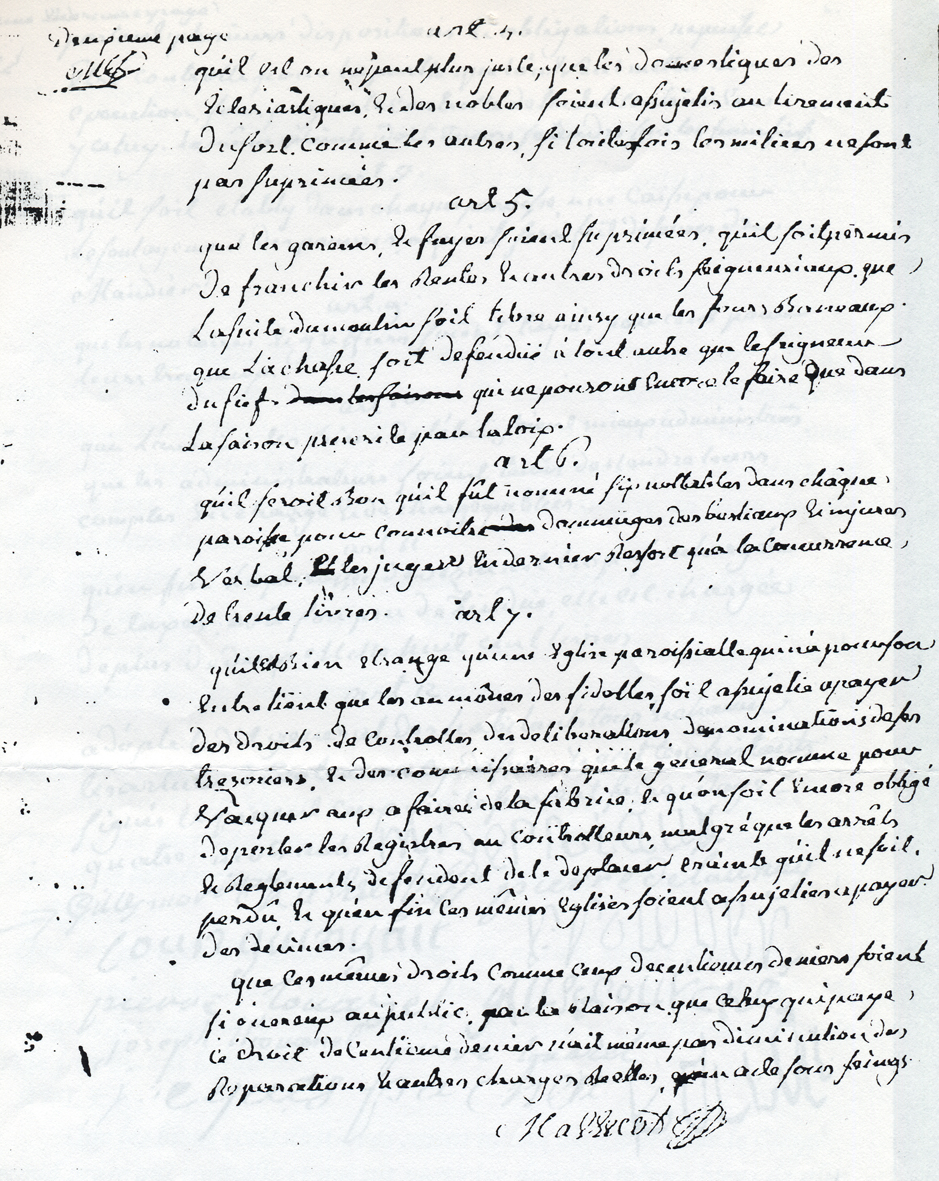 Deuxieme page
art 4.
qu'il est on ne peut plus juste, que les domestiques des
Eclesiastiques, & des nobles soient assujetis au tirement
du sort, comme les autres, si toutefois les milices ne sont
pas suprimées.
art 5.
que les garenes, & fuyes soient suprimées, qu'il soit permis
de franchir les Rentes & autres droits seigneuriaux, que
La suite du moulin soit libre ainsy que les fours Banneaux.
que La chasse soit defendüe à tout autre que le seigneur
du fief qui ne pouront Encore le faire Que dans
La saison prescrite par la loix.
art 6.
qu'il seroit Bon qu'il fut nommé six nottables dans châque
paroisse pour connoitre dommages des bestiaux & injures
Verbal, Et les juger En dernier Resort qu'à la Concurrence
de trente livres.
art 7.
qu'il est Bien Etrange qu'une Eglise paroissialle qui n'a pour son
Entretient que les aumônes des fidelles soit assujetie a payer
des droits de Controlles des deliberations de nominations de ses
tresoriers & des commissaires que le general nomme pour
Vaquer aux afaires de la fabrice, & qu'on soit Encore obligé
de porter les Registres au Controlleurs malgré que les arrêts
& Reglements defendent de le deplacer crainte qu'il ne soit
perdû & qu'en fin ces mêmes Eglises soient assujeties a payer
des decimes.
que ces mêmes droits comme ceux de centiemes deniers soient
si onereux au public, par la Raison que celuy qui paye
ce droit de Centieme denier n'ait même pas diminution des
Reparations & autres charges Réelles, qu'un acte sous seings